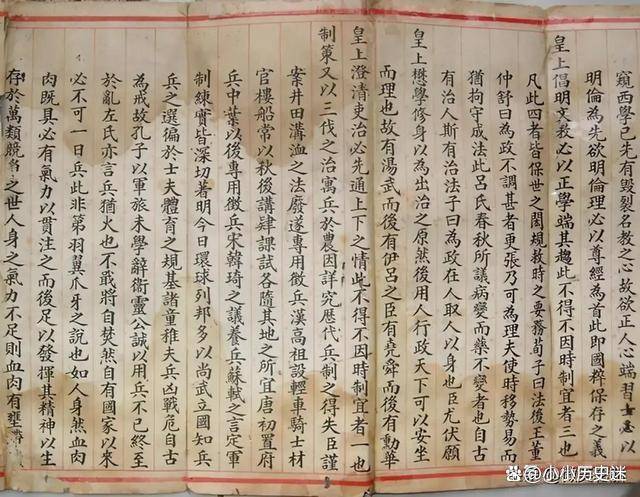 窺西學已先有毀裂名教之心故欲正人心端習士以
明倫為先欲明倫理必以尊經為首此即國粹保存之義
皇上倡明文教必以正學端其趨此不得不因時制宜者三也
凡此四者皆保世之閎規救時之要務荀子曰法後王董
仲舒曰為政不調甚者更張乃可為理夫使時移勢易而
猶拘守成法此呂氏春秋所議病變而藥不變者也自古
有治人斯有治法子曰為政在人取人以身也臣尤伏願
皇上懋學修身以為出治之原然後用人行政天下可以安坐
而理也故有湯武而後有伊呂之臣有堯舜而後有勳華
皇上澄清吏治必先通上下之情此不得不因時制宜者一也
制策又以三代之治寓兵於農因詳究歷代兵制之得失臣謹
案井田溝洫之法廢遂專用徵兵漢高祖設輕車騎士材
官樓船常以秋後講肄課試各隨其地之所宜唐初置府
兵中葉以後專用徵兵宋韓琦之議養兵蘇軾之言定軍
制練實皆深切著明今日環球列邦多以尚武立國知兵
兵之選徧於士夫體育之規基諸童稚夫兵凶戰危自古
為戒故孔子以軍旅未學辭衛靈公誠以用兵不已終至
於亂左氏亦言兵猶火也不戢將自焚然自有國家以來
必不可一日兵此非第羽翼爪牙之說也如人身然血肉
肉既具必有氣力以貫注之而後足以發揮其精神以生
存於萬類競爭之世人身之氣力不足則血肉有壅
小小历史迷